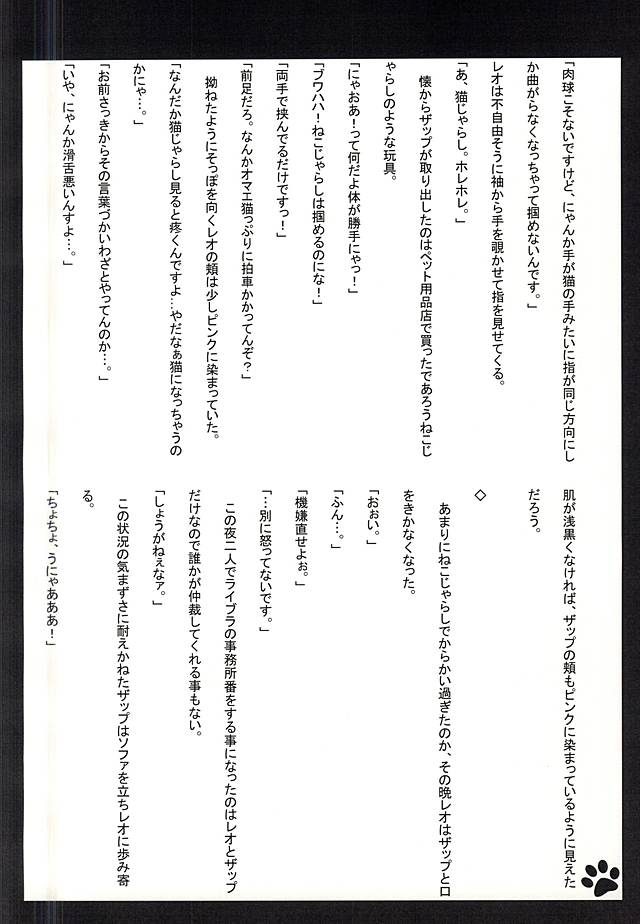 「肉球こそないですけど、にゃんか手が猫の手みたいに指が同じ方向にし
か曲がらなくなっちゃって掴めないんです。」
レオは不自由そうに袖から手を覗かせて指を見せてくる。
「あ、猫じゃらし。ホレホレ。」
懐からザップが取り出したのはペット用品店で買ったであろうねこじ
ゃらしのような玩具。
「にゃおあ！って何だよ体が勝手にゃっ！」
「ブワハハ！ねこじゃらしは掴めるのにな！」
「両手で挟んでるだけですっ！」
「前足だろ。なんかオマエ猫っぷりに拍車かかってんぞ？」
拗ねたようにそっぽを向くレオの頬は少しピンクに染まっていた。
「なんだか猫じゃらし見ると疼くんですよ…やだなぁ猫になっちゃうの
かにゃ…。」
「お前さっきからその言葉づかいわざとやってんのか…。」
「いや、にゃんか滑舌悪いんすよ…。」
肌が浅黒くなければ、ザップの頬もピンクに染まっているように見えた
だろう。
◇
あまりにねこじゃらしでからかい過ぎたのか、その晩レオはザップと口
をきかなくなった。
「おぉい。」
「ふん…。」
「機嫌直せよぉ。」
「…別に怒ってないです。」
この夜二人でライブラの事務所番をする事になったのはレオとザップ
だけなので誰かが仲裁してくれる事もない。
「しょうがねぇなァ。」
この状況の気まずさに耐えかねたザップはソファを立ちレオに歩み寄
る。
「ちょちょ、うにゃあああ！」